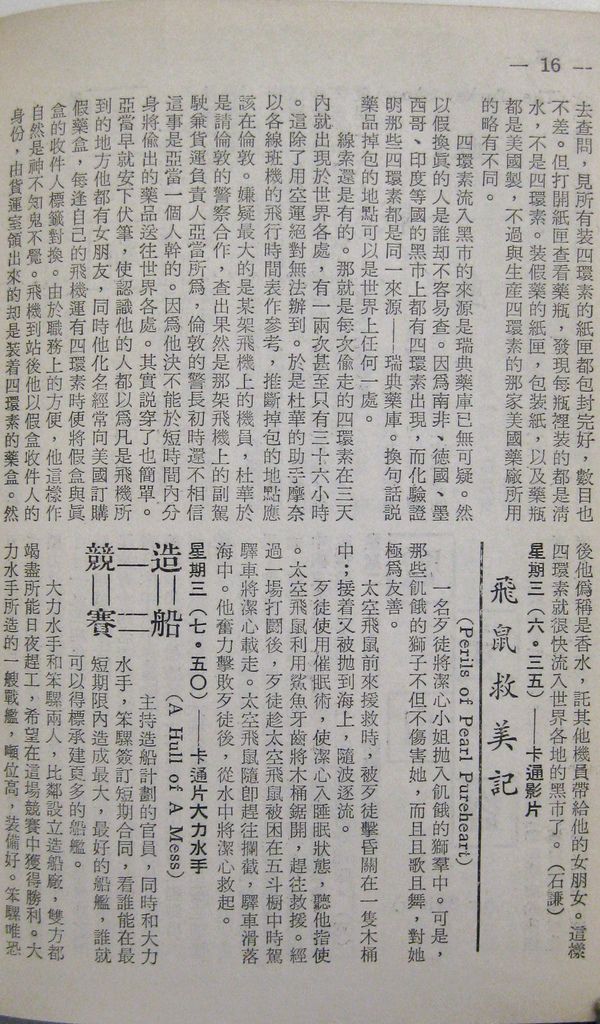 — 16 —
去查問，見所有裝四環素的紙匣都包封完好，數目也
不差。但打開紙匣查看藥瓶，發現每瓶裡裝的都是清
水，不是四環素。裝假藥的紙匣，包裝紙，以及藥瓶
都是美國製，不過與生産四環素的那家美國藥廠所用
的略有不同。
四環素流入黑市的來源是瑞典藥庫已無可疑。然
以假換眞的人是誰却不容易查。因爲南非、德國、墨
西哥、印度等國的黑市上都有四環素出現，而化驗證
明那些四環素都是同一來源——瑞典藥庫。換句話説
藥品掉包的地點可以是世界上任何一處。
線索還是有的。那就是每次偷走的四環素在三天
內就出現於世界各處，有一兩次甚至只有三十六小時
。這除了用空運絕對無法辦到。於是杜華的助手摩奈
以各線班機的飛行時間表作參考，推斷掉包的地點應
該在倫敦。嫌疑最大的是某架飛機上的機員，杜華於
是請倫敦的警察合作，查出果然是那架飛機上的副駕
駛兼貨運負責人亞當所爲，倫敦的警長初時還不相信
這事是亞當一個人幹的。因爲他決不能於短時間內分
身將偷出的藥品送往世界各處。其實説穿了也簡單。
亞當早就安下伏筆，使認識他的人都以爲凡是飛機所
到的地方他都有女朋友，同時他化名經常向美國訂購
假藥盒，每逢自己的飛機運有四環素時便將假盒與眞
盒的收件人標籤對換。由於職務上的方便，他這樣作
自然是神不知鬼不覺。飛機到站後他以假盒收件人的
身份，由貨運室領出來的却是装着四環素的藥盒。然
後他僞稱是香水，託其他機員帶給他的女朋友。這樣
四環素就很快流入世界各地的黑市了。（石謙）
星期三（六·三五）——卡通影片
飛鼠救美記
(Perils of Pearl Pureheart)
一名歹徒將潔心小姐抛入飢餓的獅羣中。可是，
那些飢餓的獅子不但不傷害她，而且且歌且舞，對她
極爲友善。
太空飛鼠前來援救時，被歹徒擊昏關在一隻木桶
中；接着又被抛到海上，隨波逐流。
歹徒使用催眠術，使潔心入睡眠狀態，聽他指使
。太空飛鼠利用鯊魚牙齒將木桶鋸開，趕往救援。經
過一場打鬪後，歹徒趁太空飛鼠被困在五斗櫥中時駕
驛車將潔心載走。太空飛鼠隨卽趕往攔截，驛車滑落
海中。他奮力擊敗歹徒後，從水中將潔心救起。
星期三（七·五〇）——卡通片大力水手
造船競賽
(A Hull of A Mess)
主持造船計劃的官員，同時和大力
水手，笨騾簽訂短期合同，看誰能在最
短期限內造成最大，最好的船艦，誰就
可以得標承建更多的船艦。
大力水手和笨騾兩人，比鄰設立造船廠，雙方都
竭盡所能日夜趕工，希望在這場競賽中獲得勝利。大
力水手所造的一艘戰艦，噸位高，装備好。笨騾唯恐